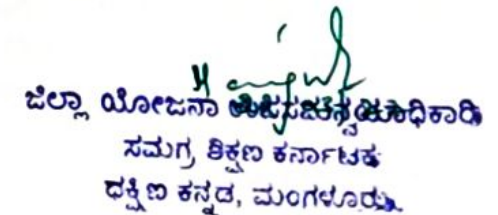 ಜಿಲ್ಲಾ ಯೋಜನಾ ಉಪಸಮನ್ವಯಾಧಿಕಾರಿ
ಸಮಗ್ರ ಶಿಕ್ಷಣ ಕರ್ನಾಟಕ
ದಕ್ಷಿಣ ಕನ್ನಡ, ಮಂಗಳೂರು.